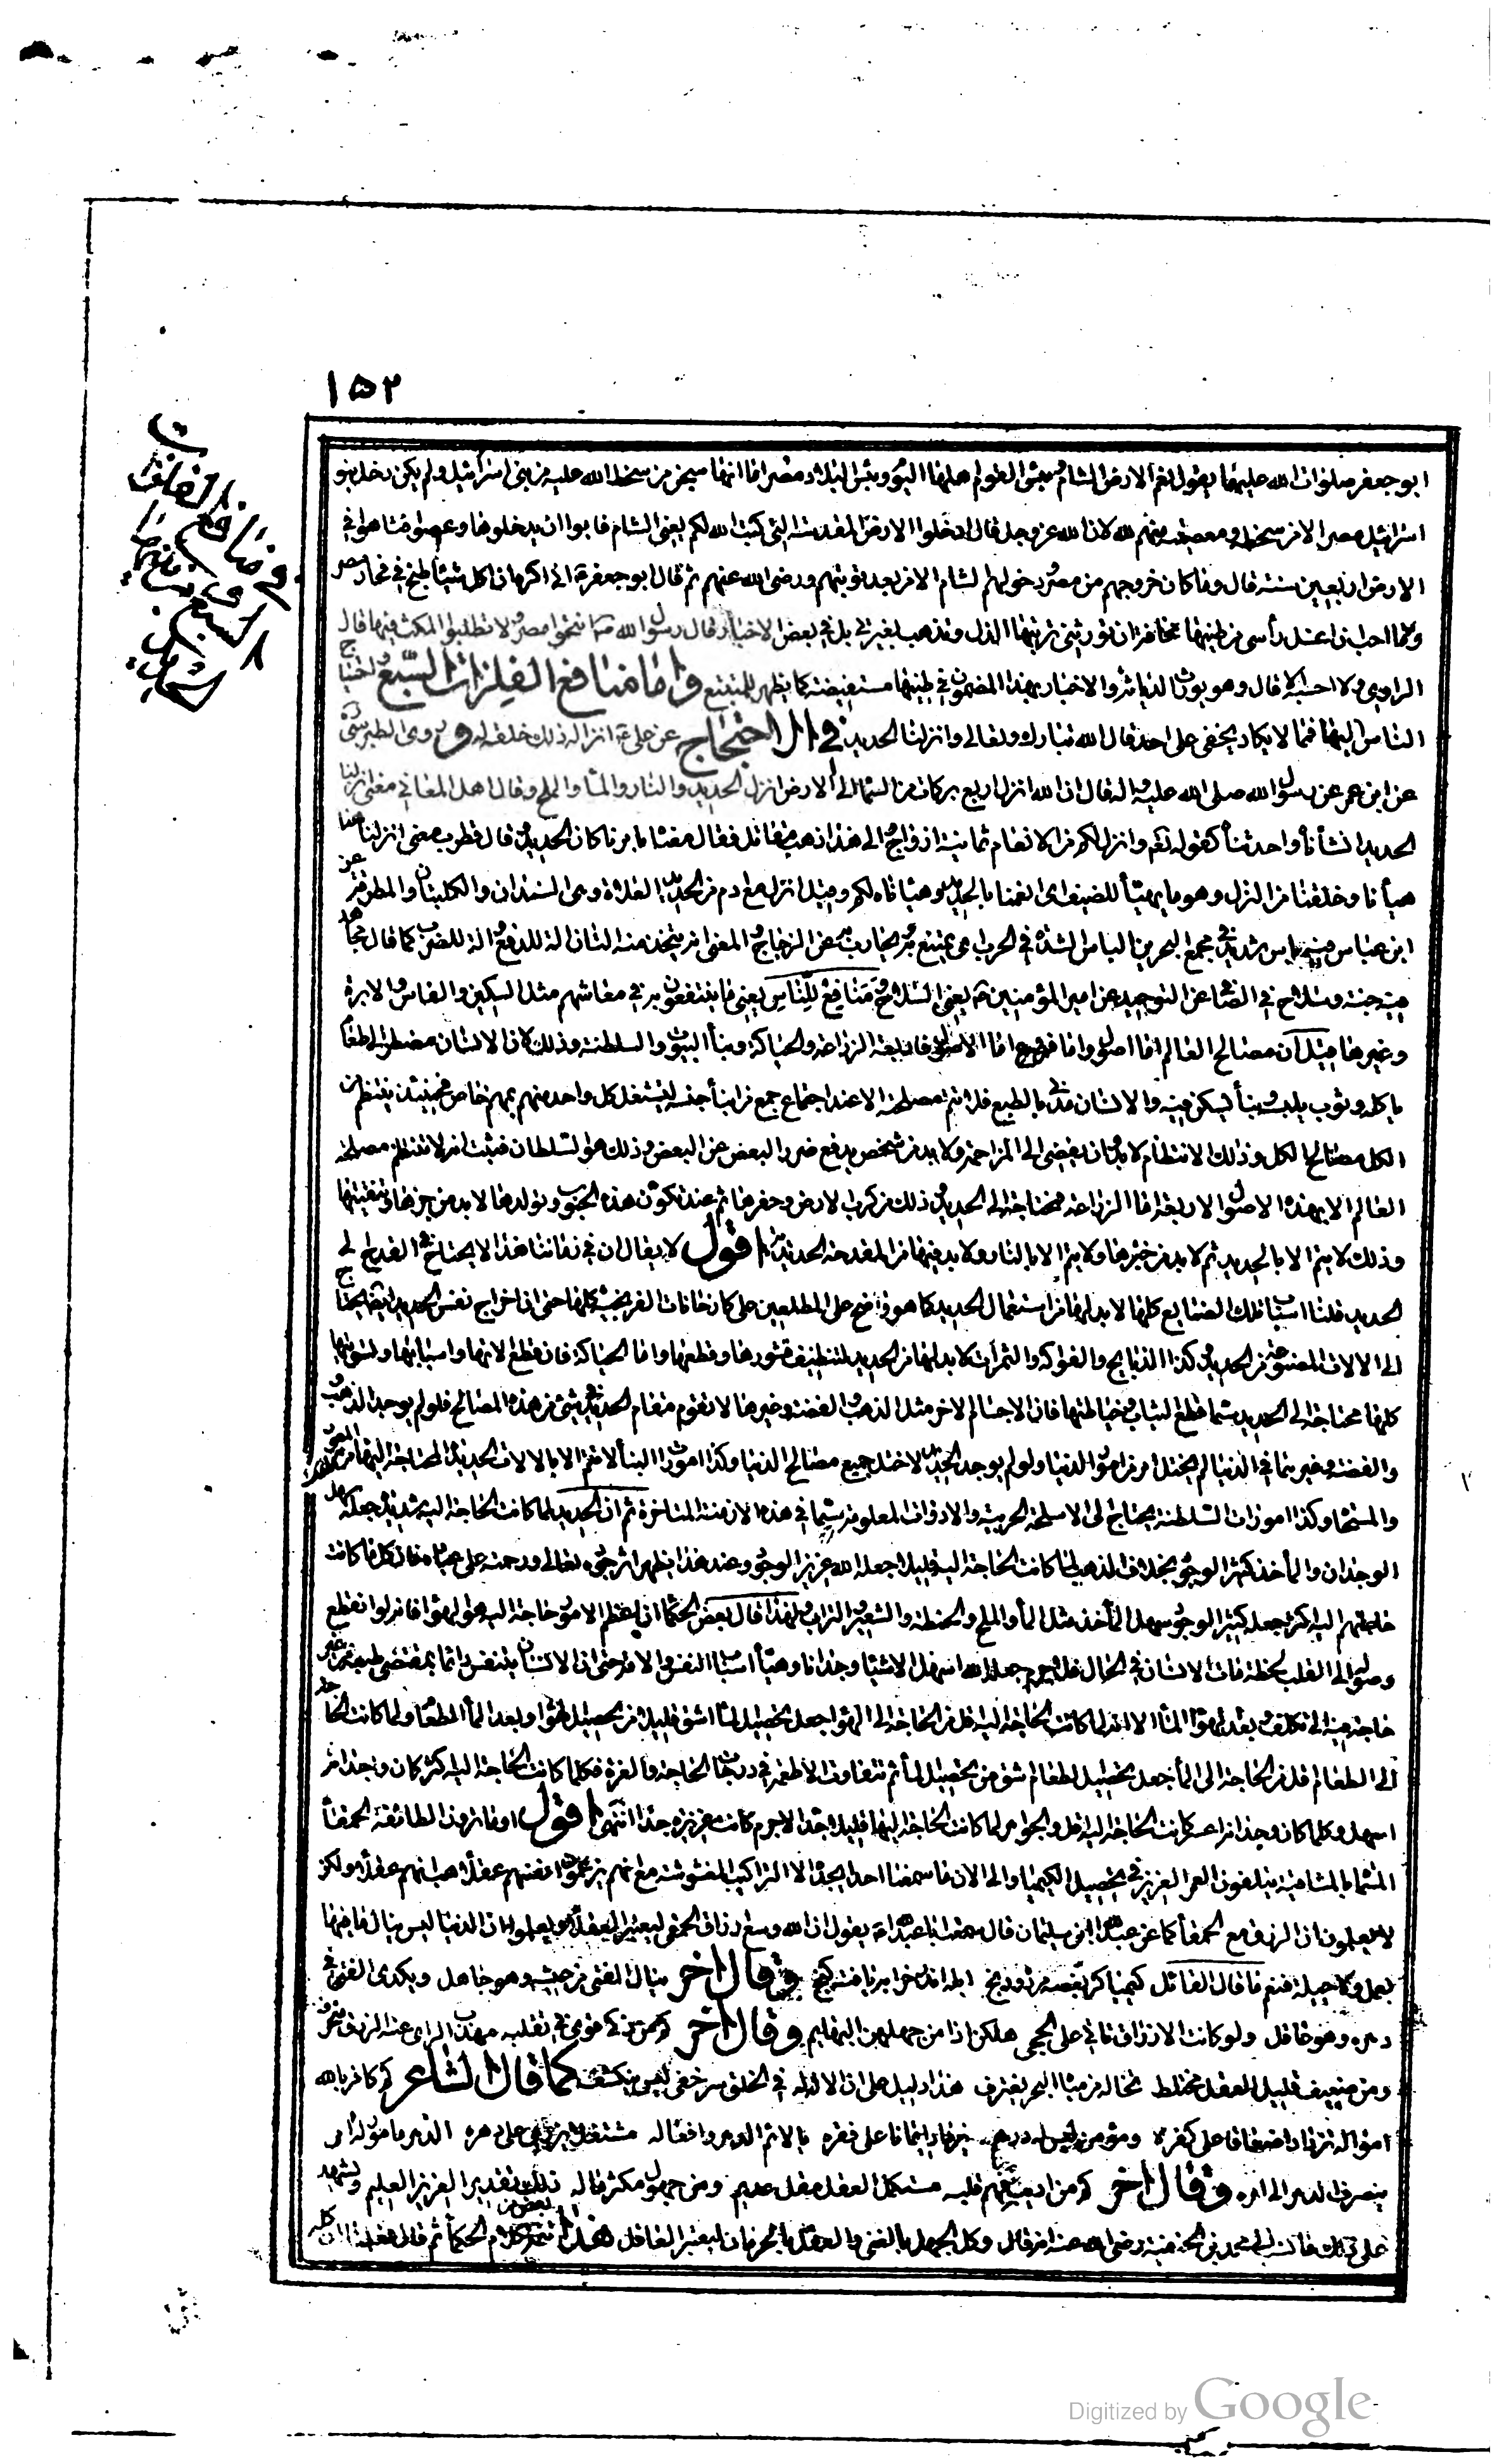 ١٥٢
في منافع الفلزات
السبع و منها
الحديد
ابو جعفر صلوات الله عليهما يقول نعم الارض الشام و بئس القوم اهلها اليوم و بئس البلاد مصر اما انها سجن من سخط الله عليه من بنى اسرائيل و لم يكن دخل بنو
اسرائيل مصر الا من سخط و معصية منهم لله لان الله عز و جل قال ادخلوا الارض المقدسة التى كتب الله لكم يعنى الشام فابوا ان يدخلوها و عصوا فتاهوا في
الارض اربعين سنة قال و ما كان خروجهم من مصر و دخولهم الشام الا من بعد توبتهم و رضى الله عنهم ثم قال ابو جعفر ع انى اكره ان اكل شيئا طبخ في فخار مصر
و ما احب ان اغسل رأسى من طينها مخافة ان تورثنى تربتها الذل و تذهب بغيرتى بل في بعض الاخبار قال رسول الله ص انتحوا مصر و لا تطلبوا المكث فيها قال
الراوى و لا احسبه الا قال و هو يورث الدياثة و الاخبار بهذا المضمون في طينها مستفيضة كما يظهر للمتتبع و اما منافع الفلزات السبع و احتياج
الناس اليها فمما لا يكاد يخفى على احد قال الله تبارك و تعالى و انزلنا الحديد في الاحتجاج عن على ع انزاله ذلك خلقه له و روى الطبرسى
عن ابن عمر عن رسول الله صلى الله عليه و اله قال ان الله انزل اربع بركات من السماء الى الارض انزل الحديد و النار و الماء و الملح و قال اهل المعانى معنى انزلنا
الحديد انشأنا و احدثنا كقوله تعالى و انزل لكم من الانعام ثمانية ازواج و الى هذا ذهب مقاتل فقال معناه بامرنا كان الحديد و قال قطرب معنى انزلنا هنا
هيأنا و خلقنا من النزل و هو ما يهيأ للضيف اى انعمنا بالحديد و هيأناه لكم و قيل انزل مع ادم من الحديد العلاة و هى السندان و الكلبتان و المطرقة عن
ابن عباس فيه بأس شديد في مجمع البحرين البأس الشدة في الحرب اى يمتنع به و يحارب به عن الزجاج و المعنى انه يتخذ منه التان الة للدفع و الة للضرب كما قال مجاهد
فيه جنة و سلاح في الصافى عن التوحيد عن امير المؤمنين ع يعنى السلاح و مَنَافِعُ لِلنَّاسِ يعنى ما ينتفعون به في معاشهم مثل السكين و الفاس و الابرة
و غيرها قيل ان مصالح العالم اما اصول و اما فروع اما الاصول فاربعة الزراعة و الحياكة و بناء البيوت و السلطنة و ذلك لان الانسان مضطر الى طعام
ياكله و ثوب يلبسه و بناء ليسكن فيه و الانسان مدنى بالطبع فلا تتم مصلحته الا عند اجتماع جمع من ابناء جنسه ليشتغل كل واحد منهم بمهم خاص فحينئذ ينتظم من
الكل مصالح الكل و ذلك الانتظام لا بد و ان يفضى الى المزاحمة و لا بد من شخص يدفع ضرر البعض عن البعض و ذلك هو السلطان فثبت انه لا تنتظم مصلحة
العالم الا بهذه الاصول الاربعة اما الزراعة فمحتاجة الى الحديد و ذلك في كرب الارض و حفرها ثم عند تكون هذه الحبوب و تولدها لا بد من جزها و تنقيتها
و ذلك لا يتم الا بالحديد ثم لا بد من خبزها و لا يتم الا بالنار و لا بد فيها من المقدحة الحديدية اقول لا يقال ان في زماننا هذا لا يحتاج في القدح الى
الحديد قلنا اسباب تلك الصنايع كلها لا بد لها من استعمال الحديد كما هو واضح على المطلعين على كارخانات الفرنجية كلها حتى ان اخراج نفس الحديد ايضا يحتاج
الى الالات المصنوعة من الحديد و كذا الذبايح و الفواكه و الثمرات لا بد لها من الحديد لتنظيف قشورها و قطعها و اما الحياكة فان قطع الاتها و اسبابها و تسويتها
كلها محتاجة الى الحديد سيما قطع الثياب و خياطتها فان الاجسام الاخر مثل الذهب و الفضة و غيرها لا تقوم مقام الحديد في شئ من هذه المصالح فلو لم يوجد الذهب و
و الفضة و غيرهما في الدنيا لم يختل امر من امور الدنيا و لو لم يوجد الحديد لاختل جميع مصالح الدنيا و كذا امور البناء لا تتم الا بالالات الحديدية المحتاجة اليها من
و المسحاة و كذا امورات السلطنة يحتاج الى الاسلحة الحربية و الادوات المعلومة سيما في هذه الازمنة المتاخرة ثم ان الحديد لما كانت الحاجة اليه شديدة جعله سهل
الوجدان و المأخذ كثير الوجود بخلاف الذهب لما كانت الحاجة اليه قليلة جعله الله عزيز الوجود و عند هذا يظهر اثر جوده تعالى و رحمته على عباده فان كل ما كانت
حاجتهم اليه اكثر جعله كثير الوجود سهل المأخذ مثل الماء و الملح و الحنطة و الشعير و التراب و لهذا قال بعض الحكماء ان اعظم الامور حاجة اليه هو الهواء فانه لو انقطع
وصوله الى القلب لحظة مات الانسان في الحال فلا جرم جعله الله اسهل الاشياء وجدانا و هيأ اسباب النفس و الاته حتى ان الانسان يتنفس دائما بمقتضى طبعه من غير
حاجة فيه الى تكلف و بعد الهواء الماء الا انه لما كانت الحاجة اليه اقل من الحاجة الى الهواء جعل تحصيل الماء اشق قليلا من تحصيل الهواء و بعد الماء الطعام و لما كانت الحاجة
الى الطعام اقل من الحاجة الى الماء جعل تحصيل الطعام اشق من تحصيل الماء ثم تتفاوت الاطعمة في درجات الحاجة و العزة فكلما كانت الحاجة اليه اكثر كان وجدانه
اسهل و كلما كان وجدانه اعسر كانت الحاجة اليه اقل و الجواهر لما كانت الحاجة اليها قليلة جدا لا جرم كانت عزيزة جدا انتهى اقول
لا يعلمون ان الرزق مع الحمقاء كما عن عبد الله ابن سليمان قال سمعت ابا عبد الله ع يقول ان الله وسع ارزاق الحمقى ليعتبر العقلاء و يعلموا ان الدنيا ليس ينال ما فيها
بعمل و لا حيلة فنعم ما قال القائل كيمياگر بغصه مرده و رنج ابله اندر خرابه يافته گنج و قال اخر ينال الفتى من عيشه و هو جاهل و يكدى الفتى في
دهره و هو عاقل و لو كانت الارزاق تاتى على الحجى هلكن اذا من جهلهن البهايم و قال اخر كم من قوى قوى في تقلبه مهذب الراى عنه الرزق منحرف
و من ضعيف قليل العقل مختلط كانه من مياه البحر يغترف هذا دليل على ان الاله له في الخلق سر خفى ليس ينكشف كما قال الشاعر كم كافر بالله
امواله تزداد اضعافا على كفره و مؤمن ليس له درهم يزداد ايمانا على فقره يا لائم الدهر و افعاله مشتغلا يزرى على دهره الدهر مامور له امر
ينصرف الدهر الى امره و قال اخر كم من اديب فهم قلبه مستكمل العقل مقل عديم و من جهول مكثر ماله ذلك تقدير العزيز العليم و يشهد
Digitized by Google